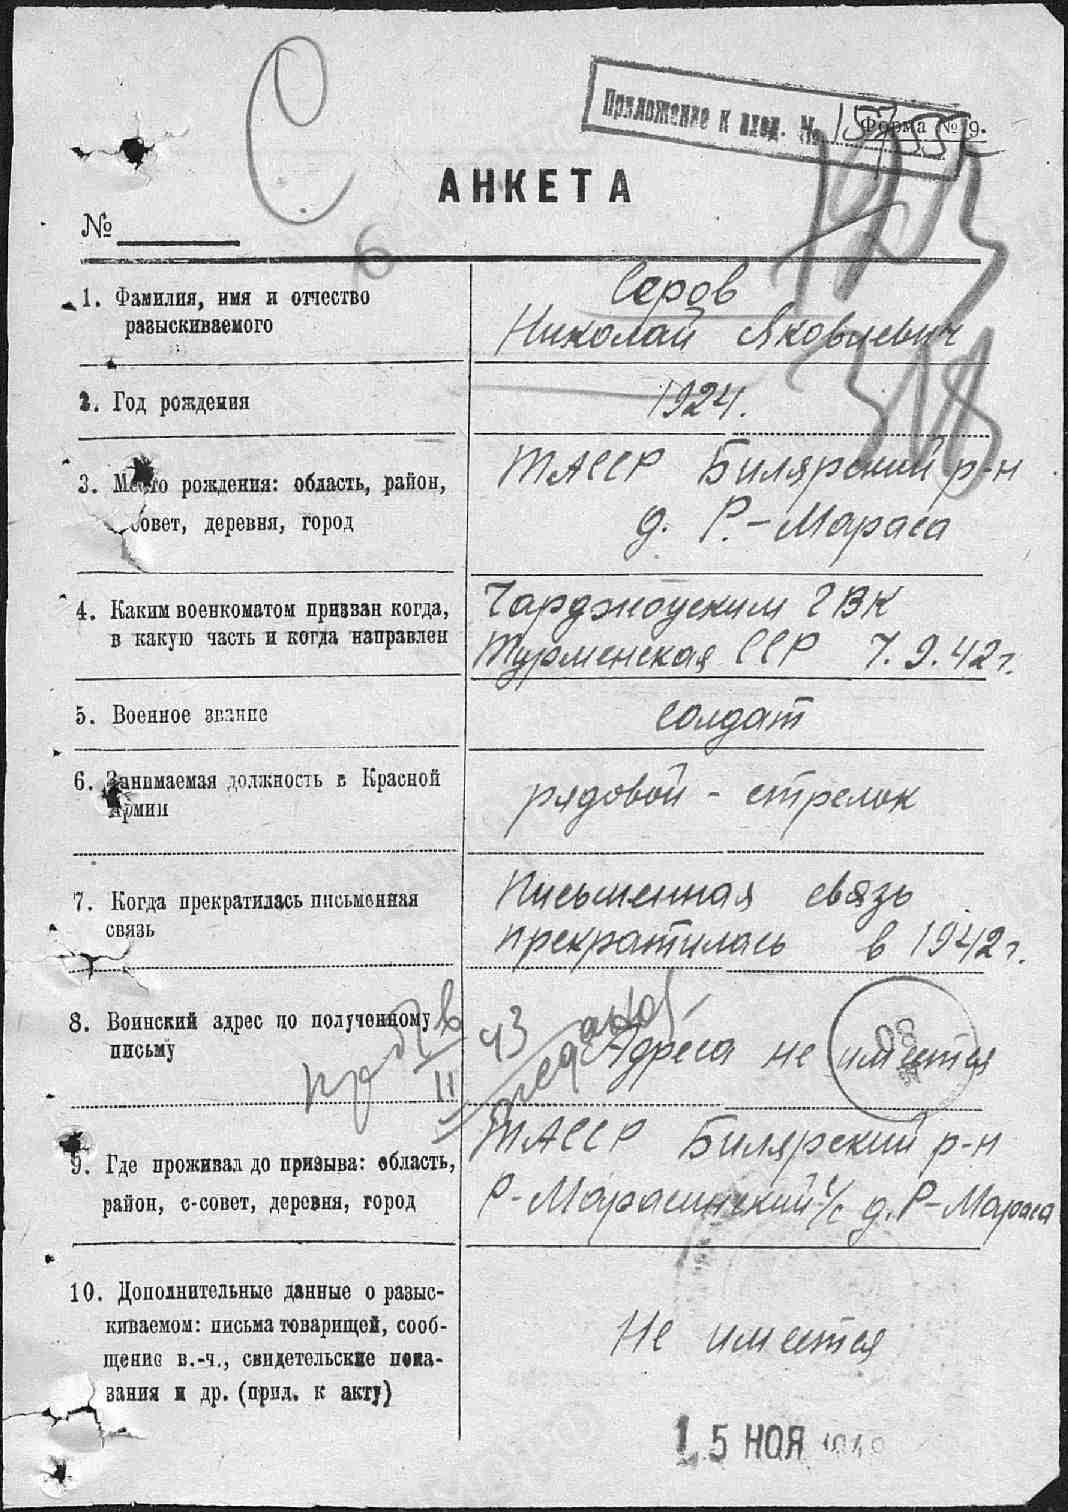 С
Приложение к вход. №
Форма № 9.
АНКЕТА
№
6
1. Фамилия, имя и отчество
разыскиваемого
Серов
Николай Яковлевич
2. Год рождения
1924.
3. Место рождения: область, район,
совет, деревня, город
ТАССР Билярский р-н
д. Р.-Мараса
4. Каким военкоматом призван когда,
в какую часть и когда направлен
Чарджоуским ГВК
Турменская ССР 7.9.42г.
5. Военное звание
солдат
6. Занимаемая должность в Красной
Армии
рядовой - стрелок
7. Когда прекратилась письменная
связь
Письменная связь
прекратилась в 1942г.
8. Воинский адрес по полученному
письму
Адреса не имеется
43
9. Где проживал до призыва: область,
район, с-совет, деревня, город
ТАССР Билярский р-н
Р-Марасинский с/с д. Р-Мараса
10. Дополнительные данные о разыс-
киваемом: письма товарищей, сооб-
щение в.-ч., свидетельские пока-
зания и др. (прил. к акту)
Не имеется
15 НОЯ